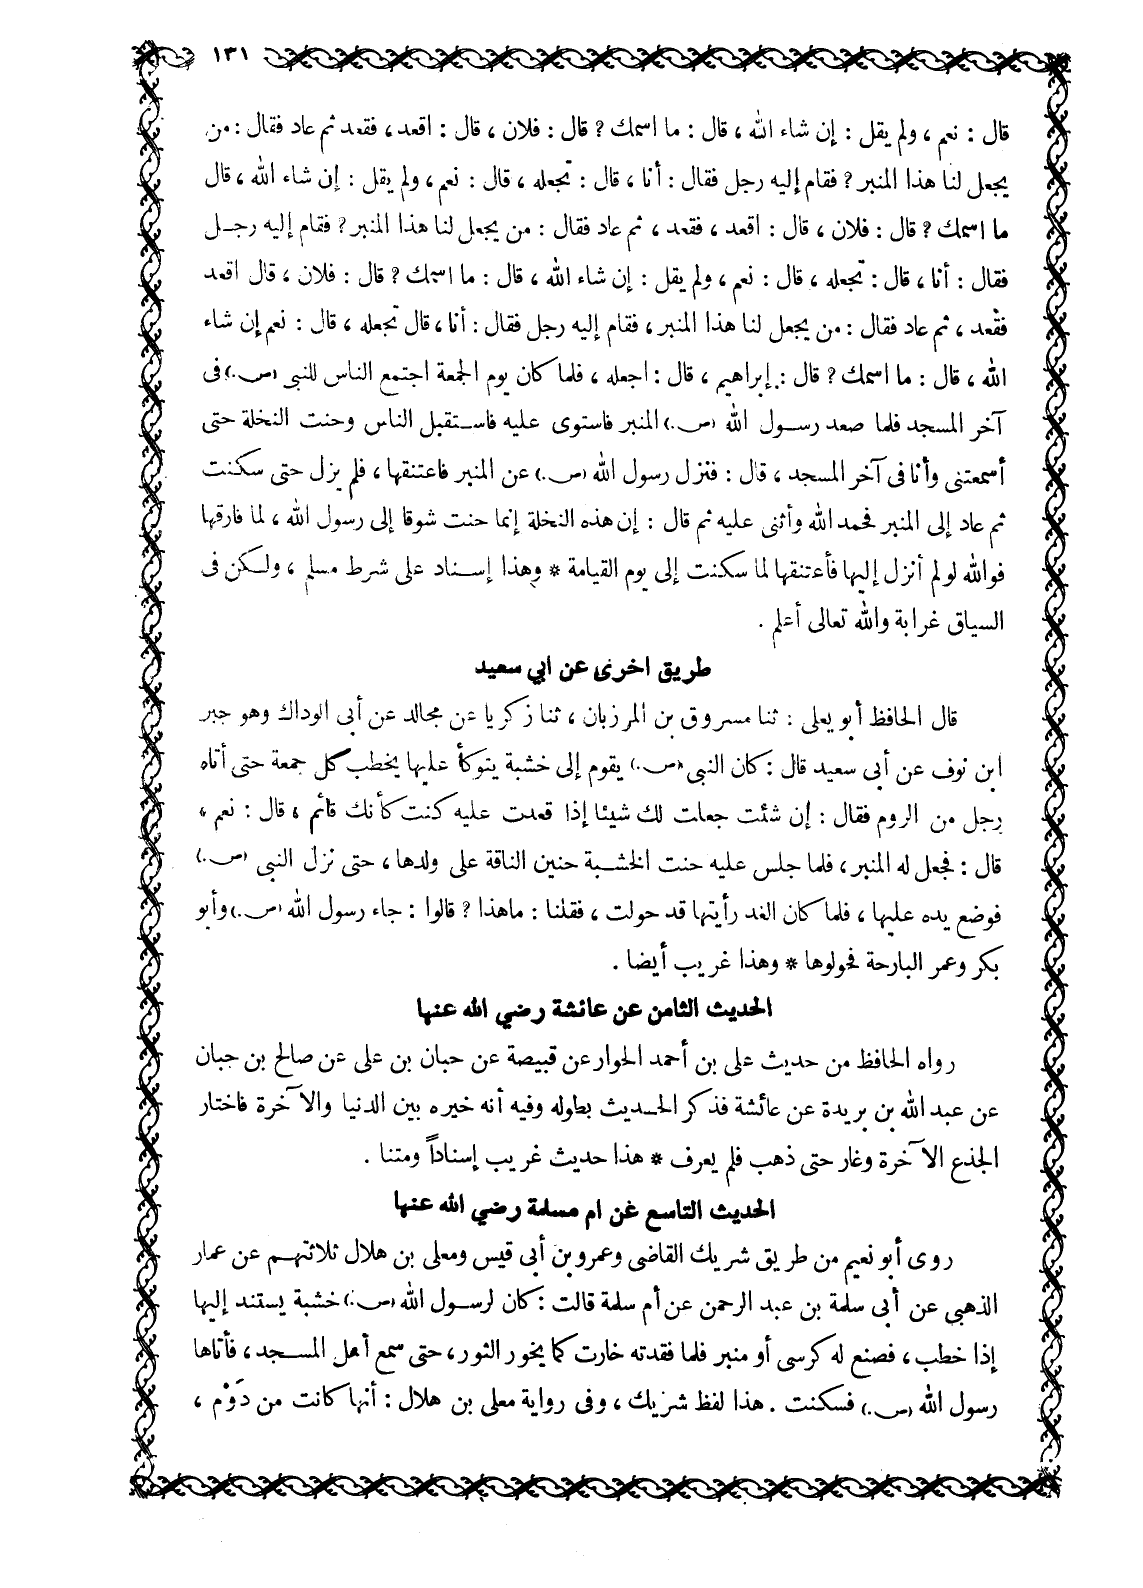 ١٣١
قال : نعم ، ولم يقل : إن شاء الله ، قال : ما اسمك ? قال : فلان ، قال : اقعد ، فقعد ثم عاد فقال : من
يجعل لنا هذا المنبر ? فقام إليه رجل فقال : أنا ، قال : تجعله ، قال : نعم ، ولم يقل : إن شاء الله ، قال
ما اسمك ? قال : فلان ، قال : اقعد ، فقعد ، ثم عاد فقال : من يجعل لنا هذا المنبر ? فقام إليه رجل
فقال : أنا ، قال : تجعله ، قال : نعم ، ولم يقل : إن شاء الله ، قال : ما اسمك ? قال : فلان ، قال اقعد
فقعد ، ثم عاد فقال : من يجعل لنا هذا المنبر ، فقام إليه رجل فقال : أنا ، قال تجعله ، قال : نعم إن شاء
الله ، قال : ما اسمك ? قال : إبراهيم ، قال : اجعله ، فلما كان يوم الجمعة اجتمع الناس للنبى (ص.) فى
آخر المسجد فلما صعد رسول الله (ص.) المنبر فاستوى عليه فاستقبل الناس وحنت النخلة حتى
أسمعتنى وأنا فى آخر المسجد ، قال : فنزل رسول الله (ص.) عن المنبر فاعتنقها ، فلم يزل حتى سكنت
ثم عاد إلى المنبر فحمد الله وأثنى عليه ثم قال : إن هذه النخلة إنما حنت شوقا إلى رسول الله ، لما فارقها
فوالله لو لم أنزل إليها فأعتنقها لما سكنت إلى يوم القيامة * وهذا إسناد على شرط مسلم ، ولكن فى
السياق غرابة والله تعالى أعلم .
طريق اخرى عن ابي سعيد
قال الحافظ أبو يعلى : ثنا مسروق بن المرزبان ، ثنا زكريا عن مجالد عن أبى الوداك وهو جبر
ابن نوف عن أبى سعيد قال : كان النبى (ص.) يقوم إلى خشبة يتوكأ عليها يخطب كل جمعة حتى أتاه
رجل من الروم فقال : إن شئت جعلت لك شيئا إذا قعدت عليه كنت كأنك قائم ، قال : نعم ،
قال : فجعل له المنبر ، فلما جلس عليه حنت الخشبة حنين الناقة على ولدها ، حتى نزل النبى (ص.)
فوضع يده عليها ، فلما كان الغد رأيتها قد حولت ، فقلنا : ماهذا ? قالوا : جاء رسول الله (ص.) وأبو
بكر وعمر البارحة فحولوها * وهذا غريب أيضا .
الحديث الثامن عن عائشة رضي الله عنها
رواه الحافظ من حديث على بن أحمد الحوار عن قبيصة عن حبان بن على عن صالح بن حبان
عن عبد الله بن بريدة عن عائشة فذكر الحديث بطوله وفيه أنه خيره بين الدنيا والآخرة فاختار
الجذع الآخرة وغار حتى ذهب فلم يعرف * هذا حديث غريب إسناداً ومتنا .
الحديث التاسع عن ام مسلمة رضي الله عنها
روى أبو نعيم من طريق شريك القاضى وعمرو بن أبى قيس ومعلى بن هلال ثلاثتهم عن عمار
الذهبى عن أبى سلمة بن عبد الرحمن عن أم سلمة قالت : كان لرسول الله (ص.) خشبة يستند إليها
إذا خطب ، فصنع له كرسى أو منبر فلما فقدته خارت كما يخور الثور ، حتى سمع أهل المسجد ، فأتاها
رسول الله (ص.) فسكنت . هذا لفظ شريك ، وفى رواية معلى بن هلال : أنها كانت من دَوْم ،